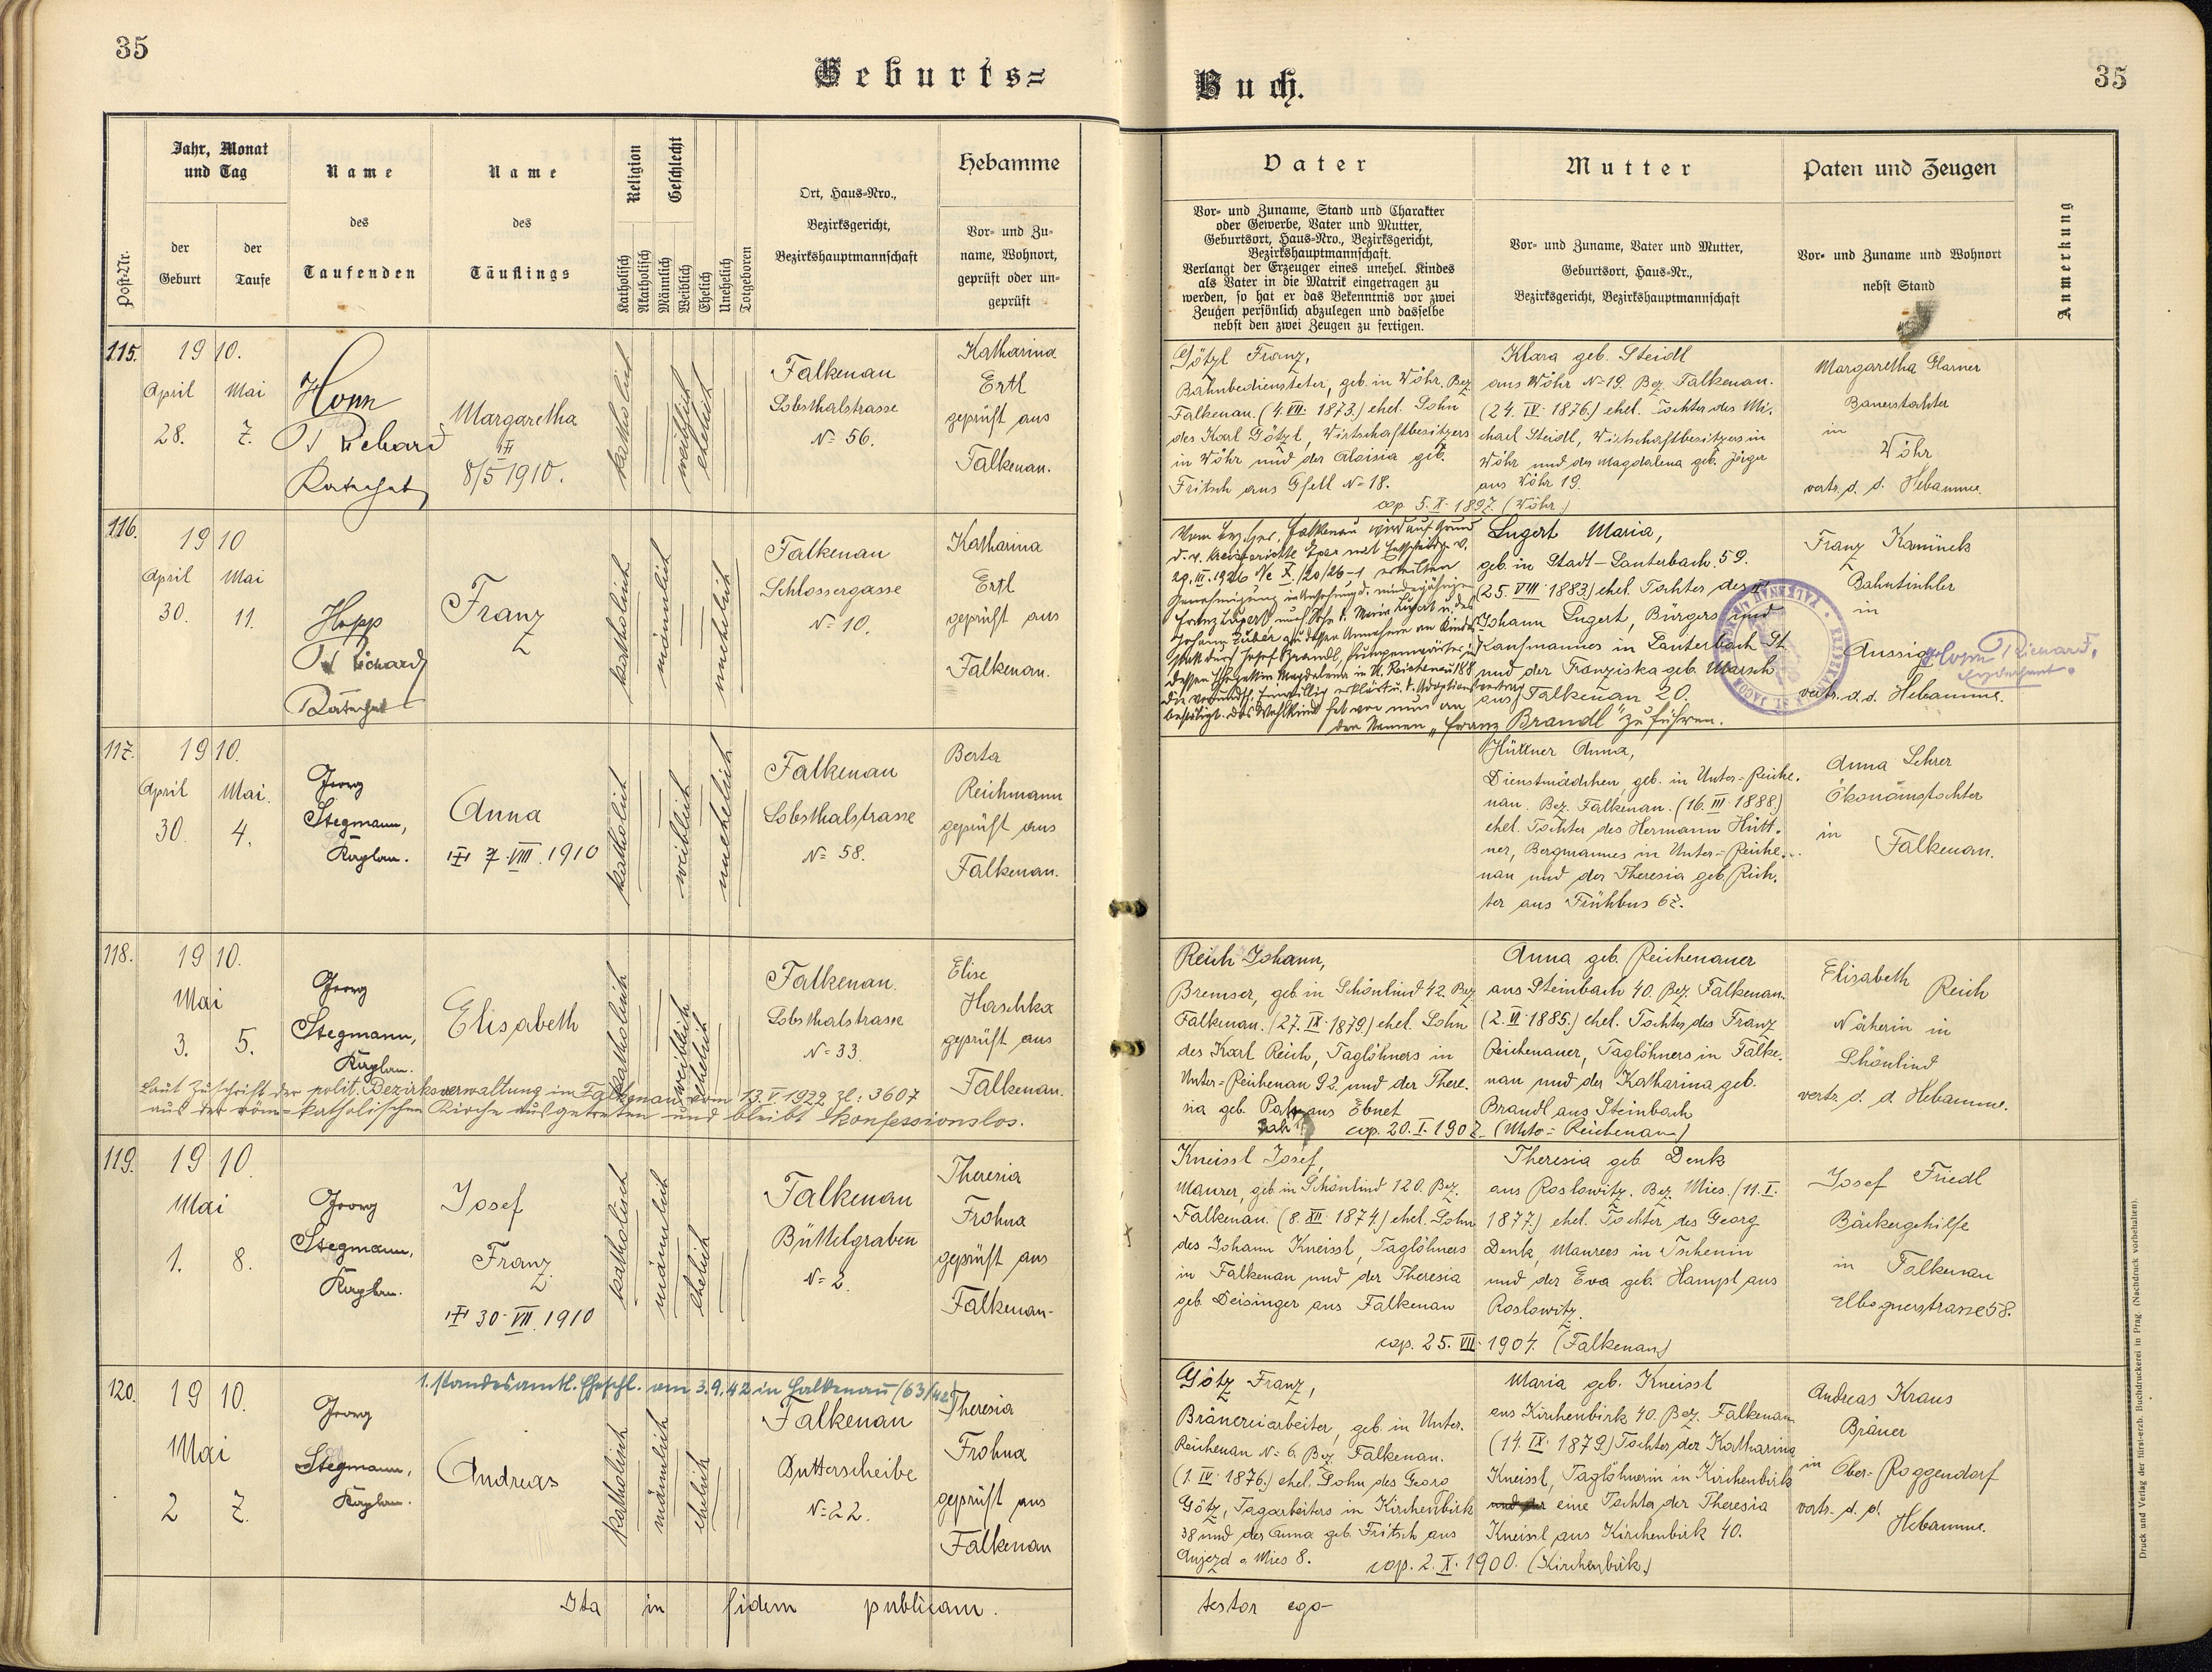 35
Geburts=
Buch.
35
Post-Nr.
Jahr, Monat
und Tag
der
Geburt
der
Taufe
Name
des
Taufenden
Name
des
Täuflings
Religion
Katholisch
Akatholisch
Geschlecht
Männlich
Weiblich
Ehelich
Unehelich
Totgeboren
Ort, Haus=Nro.,
Bezirksgericht,
Bezirkshauptmannschaft
Hebamme
Vor= und Zu=
name, Wohnort,
geprüft oder un=
geprüft
Vater
Vor= und Zuname, Stand und Charakter
oder Gewerbe, Vater und Mutter,
Geburtsort, Haus=Nro., Bezirksgericht,
Bezirkshauptmannschaft.
Verlangt der Erzeuger eines unehel. Kindes
als Vater in die Matrik eingetragen zu
werden, so hat er das Bekenntnis vor zwei
Zeugen persönlich abzulegen und dasselbe
nebst den zwei Zeugen zu fertigen.
Mutter
Vor= und Zuname, Vater und Mutter,
Geburtsort, Haus=Nr.,
Bezirksgericht, Bezirkshauptmannschaft
Paten und Zeugen
Vor= und Zuname und Wohnort
nebst Stand
Anmerkung
115.
1910.
April Mai
28. 7.
Hopp
Richard
Katechet
Margaretha
8/5 1910.
katholisch
weiblich
ehelich
Falkenau
Lobsthalstrasse
No 56.
Katharina
Ertl
geprüft aus
Falkenau.
Götzl Franz,
Bahnbediensteter, geb. in Wöhr, Bez.
Falkenau. (4. VII. 1873.) ehel. Sohn
des Karl Götzl, Wirtschaftbesitzers
in Wöhr und der Aloisia geb.
Fritsch aus Gfell No 18.
Klara geb. Steidl
aus Wöhr No 19. Bez. Falkenau.
(24. IV. 1876.) ehel. Tochter des Mi-
chael Steidl, Wirtschaftbesitzers in
Wöhr und der Magdalena geb. Jörger
aus Wöhr 19.
cop. 5. X. 1897. (Wöhr.)
Margaretha Glarner
Bauerstochter
in
Wöhr
vertr. d. d. Hebamme.
116.
1910
April Mai
30. 11.
Hopp
Richard
Katechet
Franz
katholisch
männlich
unehelich
Falkenau
Schlossergasse
No 10.
Katharina
Ertl
geprüft aus
Falkenau.
Vom Bez. Ger. Falkenau wird auf Grund
d. v. Kreisgerichte Eger mit Entscheidg. v.
29. III. 1926 Nc X /20/26-1 erteilten
Genehmigung
dessen Ehegattin Magdalena in U. Reichenau 188
bestätigt. Das Wahlkind hat von nun an
den Namen „Franz Brandl" zu führen.
Lugert Maria,
geb. in Stadt-Lauterbach 59.
(25. VIII. 1883.) ehel. Tochter des
Johann Lugert, Bürgers und
Kaufmannes in Lauterbach St.
und der Franziska geb. Marsch
aus Falkenau 20.
Franz Kaminek
Bahntischler
in
Aussig
vertr. d. d. Hebamme.
Hopp Richard,
117.
1910.
April Mai.
30. 4.
Georg
Stegmann,
Kaplan.
Anna
7. VIII. 1910
katholisch
weiblich
unehelich
Falkenau
Lobsthalstrasse
No 58.
Berta
Reichmann
geprüft aus
Falkenau.
Hüttner Anna,
Dienstmädchen, geb. in Unter-Reiche-
nau. Bez. Falkenau. (16. III. 1888.)
ehel. Tochter des Hermann Hütt-
ner, Bergmannes in Unter-Reiche-
nau und der Theresia geb. Rich-
ter aus Frühbus 67.
Anna Lehrer
Ökonomstochter
in
Falkenau.
118.
1910.
Mai
3. 5.
Georg
Stegmann,
Kaplan.
Elisabeth
katholisch
weiblich
ehelich
Falkenau.
Lobsthalstrasse
No 33.
Elise
Haschka
geprüft aus
Falkenau.
Laut Zuschrift der polit. Bezirksverwaltung in Falkenau vom 13. V. 1922 Zl: 3607
aus der röm-katholischen Kirche ausgetreten und bleibt konfessionslos.
Reich Johann,
Bremser, geb. in Schönlind 42. Bez.
Falkenau. (27. IX. 1879.) ehel. Sohn
des Karl Reich, Taglöhners in
Unter-Reichenau 92. und der There-
sia geb. aus Ebnet
Anna geb. Reichenauer
aus Steinbach 40. Bez. Falkenau.
(2. VI. 1885.) ehel. Tochter des Franz
Reichenauer, Taglöhners in Falke-
nau und der Katharina geb.
Brandl aus Steinbach
cop. 20. I. 1907. (Unto-Reichenau.)
Elisabeth Reich
Näherin in
Schönlind
vertr. d. d. Hebamme.
119.
1910
Mai
1. 8.
Georg
Stegmann,
Kaplan.
Josef
Franz
30. VII. 1910
katholisch
männlich
ehelich
Falkenau
Büttelgraben
No 2.
Theresia
Frohna
geprüft aus
Falkenau-
Kneissl Josef,
Maurer, geb. in Schönlind 120. Bez.
Falkenau. (8. XII. 1874.) ehel. Sohn
des Johann Kneissl, Taglöhners
in Falkenau und der Theresia
geb. Deisinger aus Falkenau
Theresia geb. Denk
aus Roslowitz. Bez. Mies. (11. I.
1877.) ehel. Tochter des Georg
Denk, Maurers in Tschenin
und der Eva geb. Hampl aus
Roslowitz.
cop. 25. VII. 1904. (Falkenau)
Josef Friedl
Bäckergehilfe
in Falkenau
Elbognerstrasse 58.
120.
1910.
Mai
2 7.
1. standesamtl. Eheschl. am 3.9.42 in Falkenau (63/42)
Georg
Stegmann,
Kaplan.
Andreas
katholisch
männlich
ehelich
Falkenau
Dutterscheibe
No 22.
Theresia
Frohna
geprüft aus
Falkenau
Götz Franz,
Bräuereiarbeiter, geb. in Unter-
Reichenau No 6. Bez. Falkenau.
(1. IV. 1876.) ehel. Sohn des Georg
Götz, Tagarbeiters in Kirchenbirk
38 und der Anna geb. Fritsch aus
Aujezd a. Mies 8.
Maria geb. Kneissl
aus Kirchenbirk 40. Bez. Falkenau
(14. IX. 1879.) Tochter der Katharina
Kneissl, Taglöhnerin in Kirchenbirk
und der eine Tochter der Theresia
Kneissl aus Kirchenbirk 40.
cop. 2. X. 1900. (Kirchenbirk.)
Andreas Kraus
Bräuer
in Ober-Roggendorf
vertr. d. d.
Hebamme.
Ita in fidem publicam.
testor ego-
Druck und Verlag der fürst-erzb. Buchdruckerei in Prag. (Nachdruck vorbehalten).